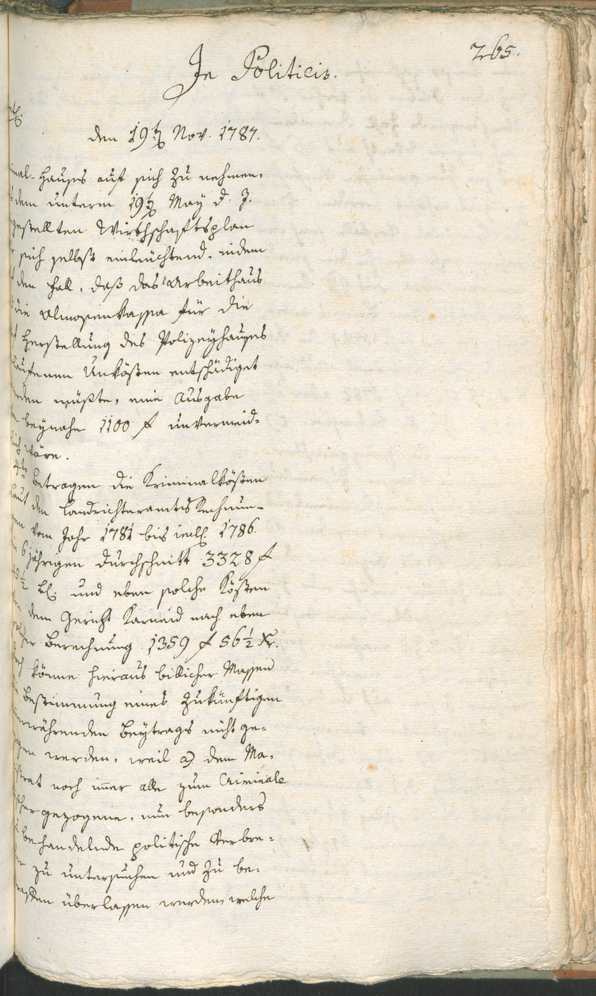 265.
In Politicis.
den 19t Nov. 1787.
nal-Hauses auf sich zu nehmen.
dem unterm 19t May d. J.
gestellten Wirthschaftsplan
sich selbst einleüchtend, indem
den fall, daß das Arbeithaus
die Almosenkassa für die
Herstellung des Polizeyhauses
laufenen Unkösten entschädiget
den müßte, eine Ausgabe
beynahe 1100 f unvermeid-
lich wäre.
betragen die Kriminalkösten
laut den Landrichteramts Rechnun-
gen vom Jahr 1781 bis incl. 1786
6 jährigen Durchschnitt 3328 f
und eben solche Kösten
dem Gericht Karneid nach eben
Berechnung 1359 f 56½ Xr.
könne hieraus billicher Massen
Bestimmung eines zukünftigen
währenden Beytrags nicht ge-
gen werden, weil a) dem Ma-
strat noch immer alle zum Criminale
gezogene, nun besonders
behandelnde politische Verbre-
zu untersuchen und zu be-
überlassen werden, welche